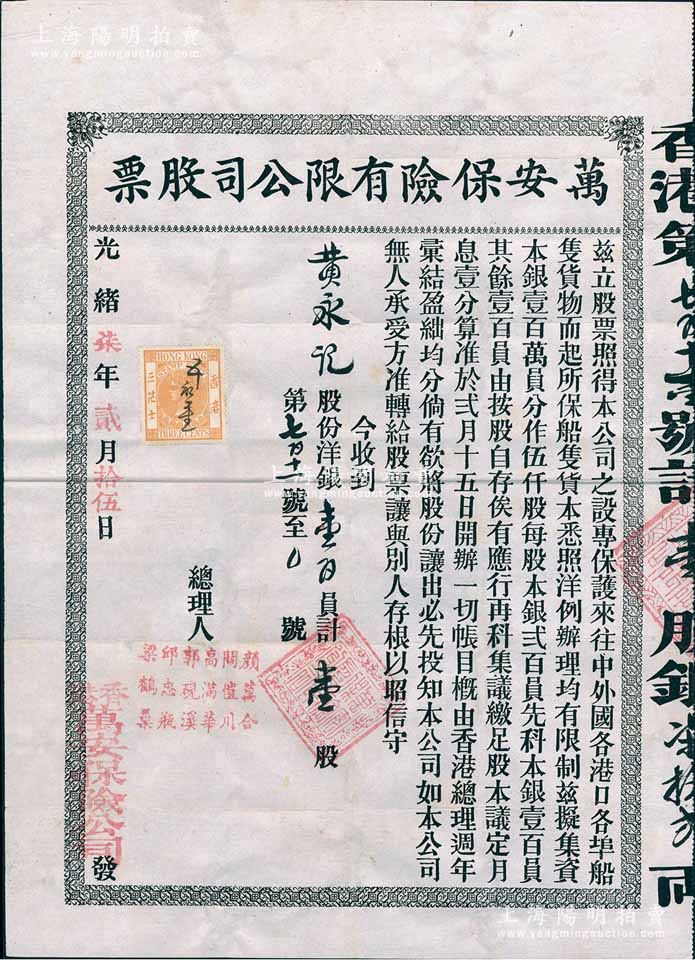 上海陽明拍賣
www.yangmingauction.com
萬安保險有限公司股票
茲立股票照得本公司之設專保護來往中外國各港口各埠船
隻貨物而起所保船隻貨本悉照洋例辦理均有限制茲擬集資
本銀壹百萬員分作伍仟股每股本銀弍百員先科本銀壹百員
其餘壹百員由按股自存俟有應行再科集議繳足股本議定月
息壹分算准於弍月十五日開辦一切帳目概由香港總理週年
彙結盈絀均分倘有欲將股份讓出必先投知本公司如本公司
無人承受方准轉給股票讓與別人存根以昭信守
今收到
黄永記 股份洋銀壹百員計壹股
第 號至 號
總理人
顏萬合
關愷川
高滿華
郭硯溪
邱忠瓶
梁鶴巢
HONG KONG
STAMP
THREE CENTS
香港
三先士
光緒柒年貳月拾伍日
香港萬安保險公司
發
香港第 號計壹股銀 両
上海陽明拍賣
www.yangmingauction.com
上海陽明拍賣
www.yangmingauction.com